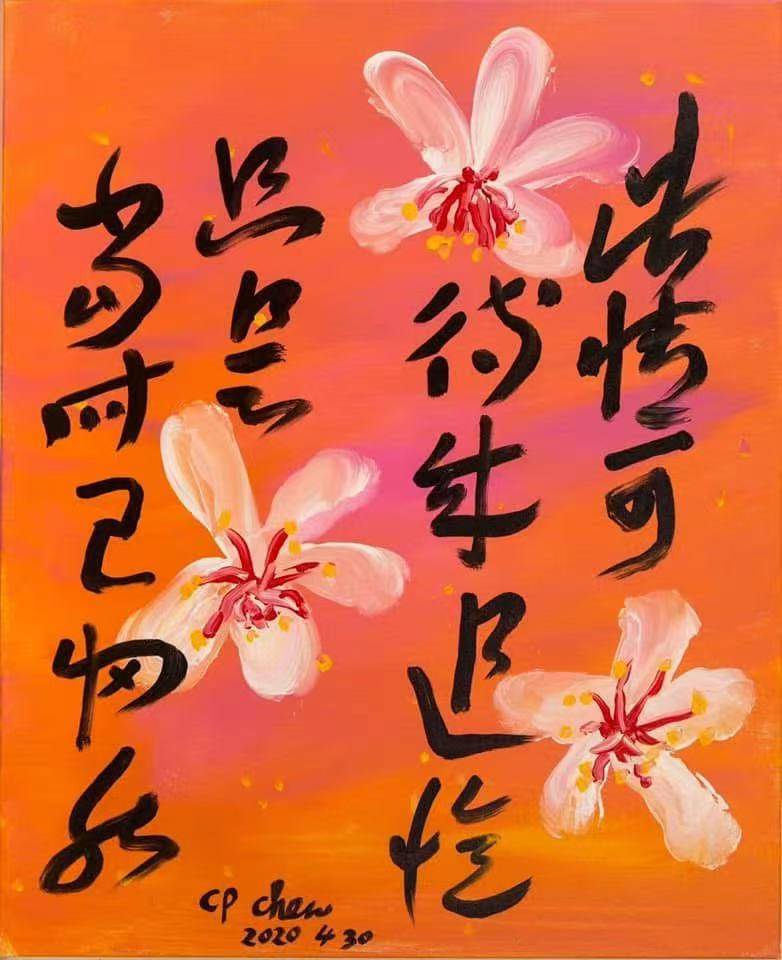 此情可
待成追憶
只是
當時已惘然
CP Chew
2020 4 30